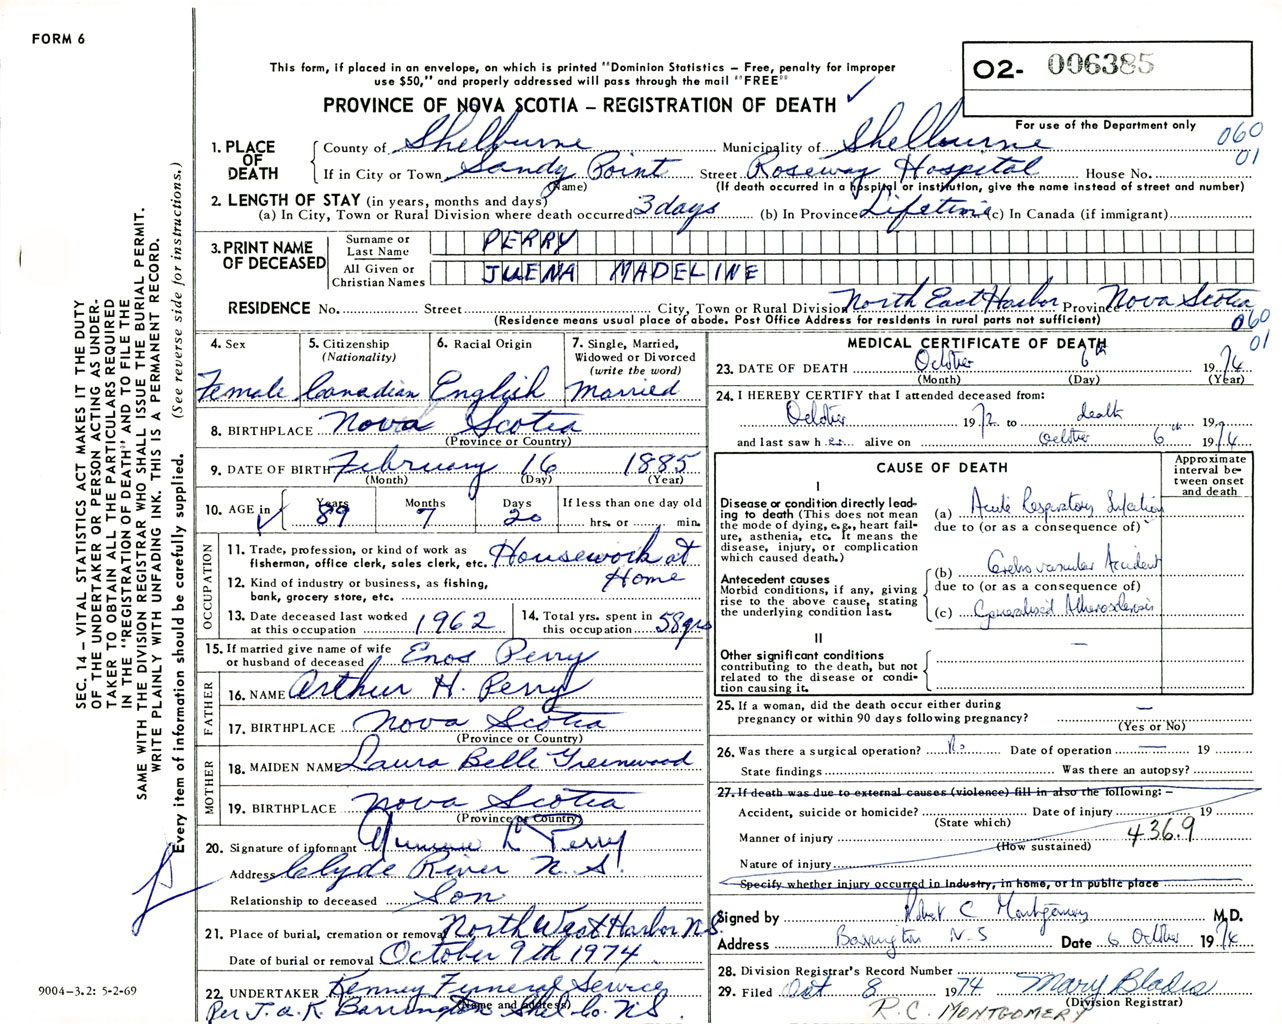 FORM 6
This form, if placed in an envelope, on which is printed "Dominion Statistics – Free, penalty for improper
use $50," and properly addressed will pass through the mail "FREE"
O2- 006385
PROVINCE OF NOVA SCOTIA – REGISTRATION OF DEATH
For use of the Department only
060
01
1. PLACE OF DEATH
County of Shelburne Municipality of Shelburne
If in City or Town Sandy Point Street Roseway Hospital House No.
(Name) (If death occurred in a hospital or institution, give the name instead of street and number)
2. LENGTH OF STAY (in years, months and days)
(a) In City, Town or Rural Division where death occurred 3 days (b) In Province Lifetime (c) In Canada (if immigrant)
3. PRINT NAME OF DECEASED
Surname or Last Name PERRY
All Given or Christian Names JUENA MADELINE
RESIDENCE No. Street City, Town or Rural Division North East Harbor Province Nova Scotia
(Residence means usual place of abode. Post Office Address for residents in rural parts not sufficient)
060
01
4. Sex Female
5. Citizenship (Nationality) Canadian
6. Racial Origin English
7. Single, Married, Widowed or Divorced (write the word) Married
8. BIRTHPLACE Nova Scotia
(Province or Country)
9. DATE OF BIRTH February 16 1885
(Month) (Day) (Year)
10. AGE in Years 89 Months 7 Days 20 If less than one day old hrs. or min.
OCCUPATION
11. Trade, profession, or kind of work as fisherman, office clerk, sales clerk, etc. Housework at
12. Kind of industry or business, as fishing, bank, grocery store, etc. Home
13. Date deceased last worked at this occupation 1962
14. Total yrs. spent in this occupation 58 yrs
15. If married give name of wife or husband of deceased Enos Perry
FATHER
16. NAME Arthur H. Perry
17. BIRTHPLACE Nova Scotia
(Province or Country)
MOTHER
18. MAIDEN NAME Laura Belle Greenwood
19. BIRTHPLACE Nova Scotia
(Province or Country)
20. Signature of informant L Perry
Address Clyde River N.S.
Relationship to deceased Son
21. Place of burial, cremation or removal North West Harbor N.S.
Date of burial or removal October 9th 1974
22. UNDERTAKER Kenney Funeral Service
(Name and address)
Per J. a. K Barrington Shel. Co. N.S.
MEDICAL CERTIFICATE OF DEATH
23. DATE OF DEATH October 6th 1974
(Month) (Day) (Year)
24. I HEREBY CERTIFY that I attended deceased from:
October 1972 to death 19
and last saw her alive on October 6th 1974
CAUSE OF DEATH
Approximate interval between onset and death
I
Disease or condition directly leading to death (This does not mean the mode of dying, e.g., heart failure, asthenia, etc. It means the disease, injury, or complication which caused death.)
(a) Acute Respiratory Infection
due to (or as a consequence of)
Antecedent causes
Morbid conditions, if any, giving rise to the above cause, stating the underlying condition last.
(b) Cerebrovascular Accident
due to (or as a consequence of)
(c) Generalised Atherosclerosis
II
Other significant conditions
contributing to the death, but not related to the disease or condition causing it.
—
25. If a woman, did the death occur either during pregnancy or within 90 days following pregnancy? —
(Yes or No)
26. Was there a surgical operation? No Date of operation — 19
State findings Was there an autopsy?
27. If death was due to external causes (violence) fill in also the following: –
Accident, suicide or homicide? Date of injury 19
(State which)
Manner of injury 436.9
(How sustained)
Nature of injury
Specify whether injury occurred in industry, in home, or in public place
Signed by Robert C Montgomery M.D.
Address Barrington N.S Date 6 October 1974
28. Division Registrar's Record Number
29. Filed Oct 8 1974 Mary Blades
(Division Registrar)
R.C. MONTGOMERY
SEC. 14 – VITAL STATISTICS ACT MAKES IT THE DUTY
OF THE UNDERTAKER OR PERSON ACTING AS UNDER-
TAKER TO OBTAIN ALL THE PARTICULARS REQUIRED
IN THE "REGISTRATION OF DEATH" AND TO FILE THE
SAME WITH THE DIVISION REGISTRAR WHO SHALL ISSUE THE BURIAL PERMIT.
WRITE PLAINLY WITH UNFADING INK. THIS IS A PERMANENT RECORD.
Every item of information should be carefully supplied. (See reverse side for instructions.)
9004–3.2: 5-2-69